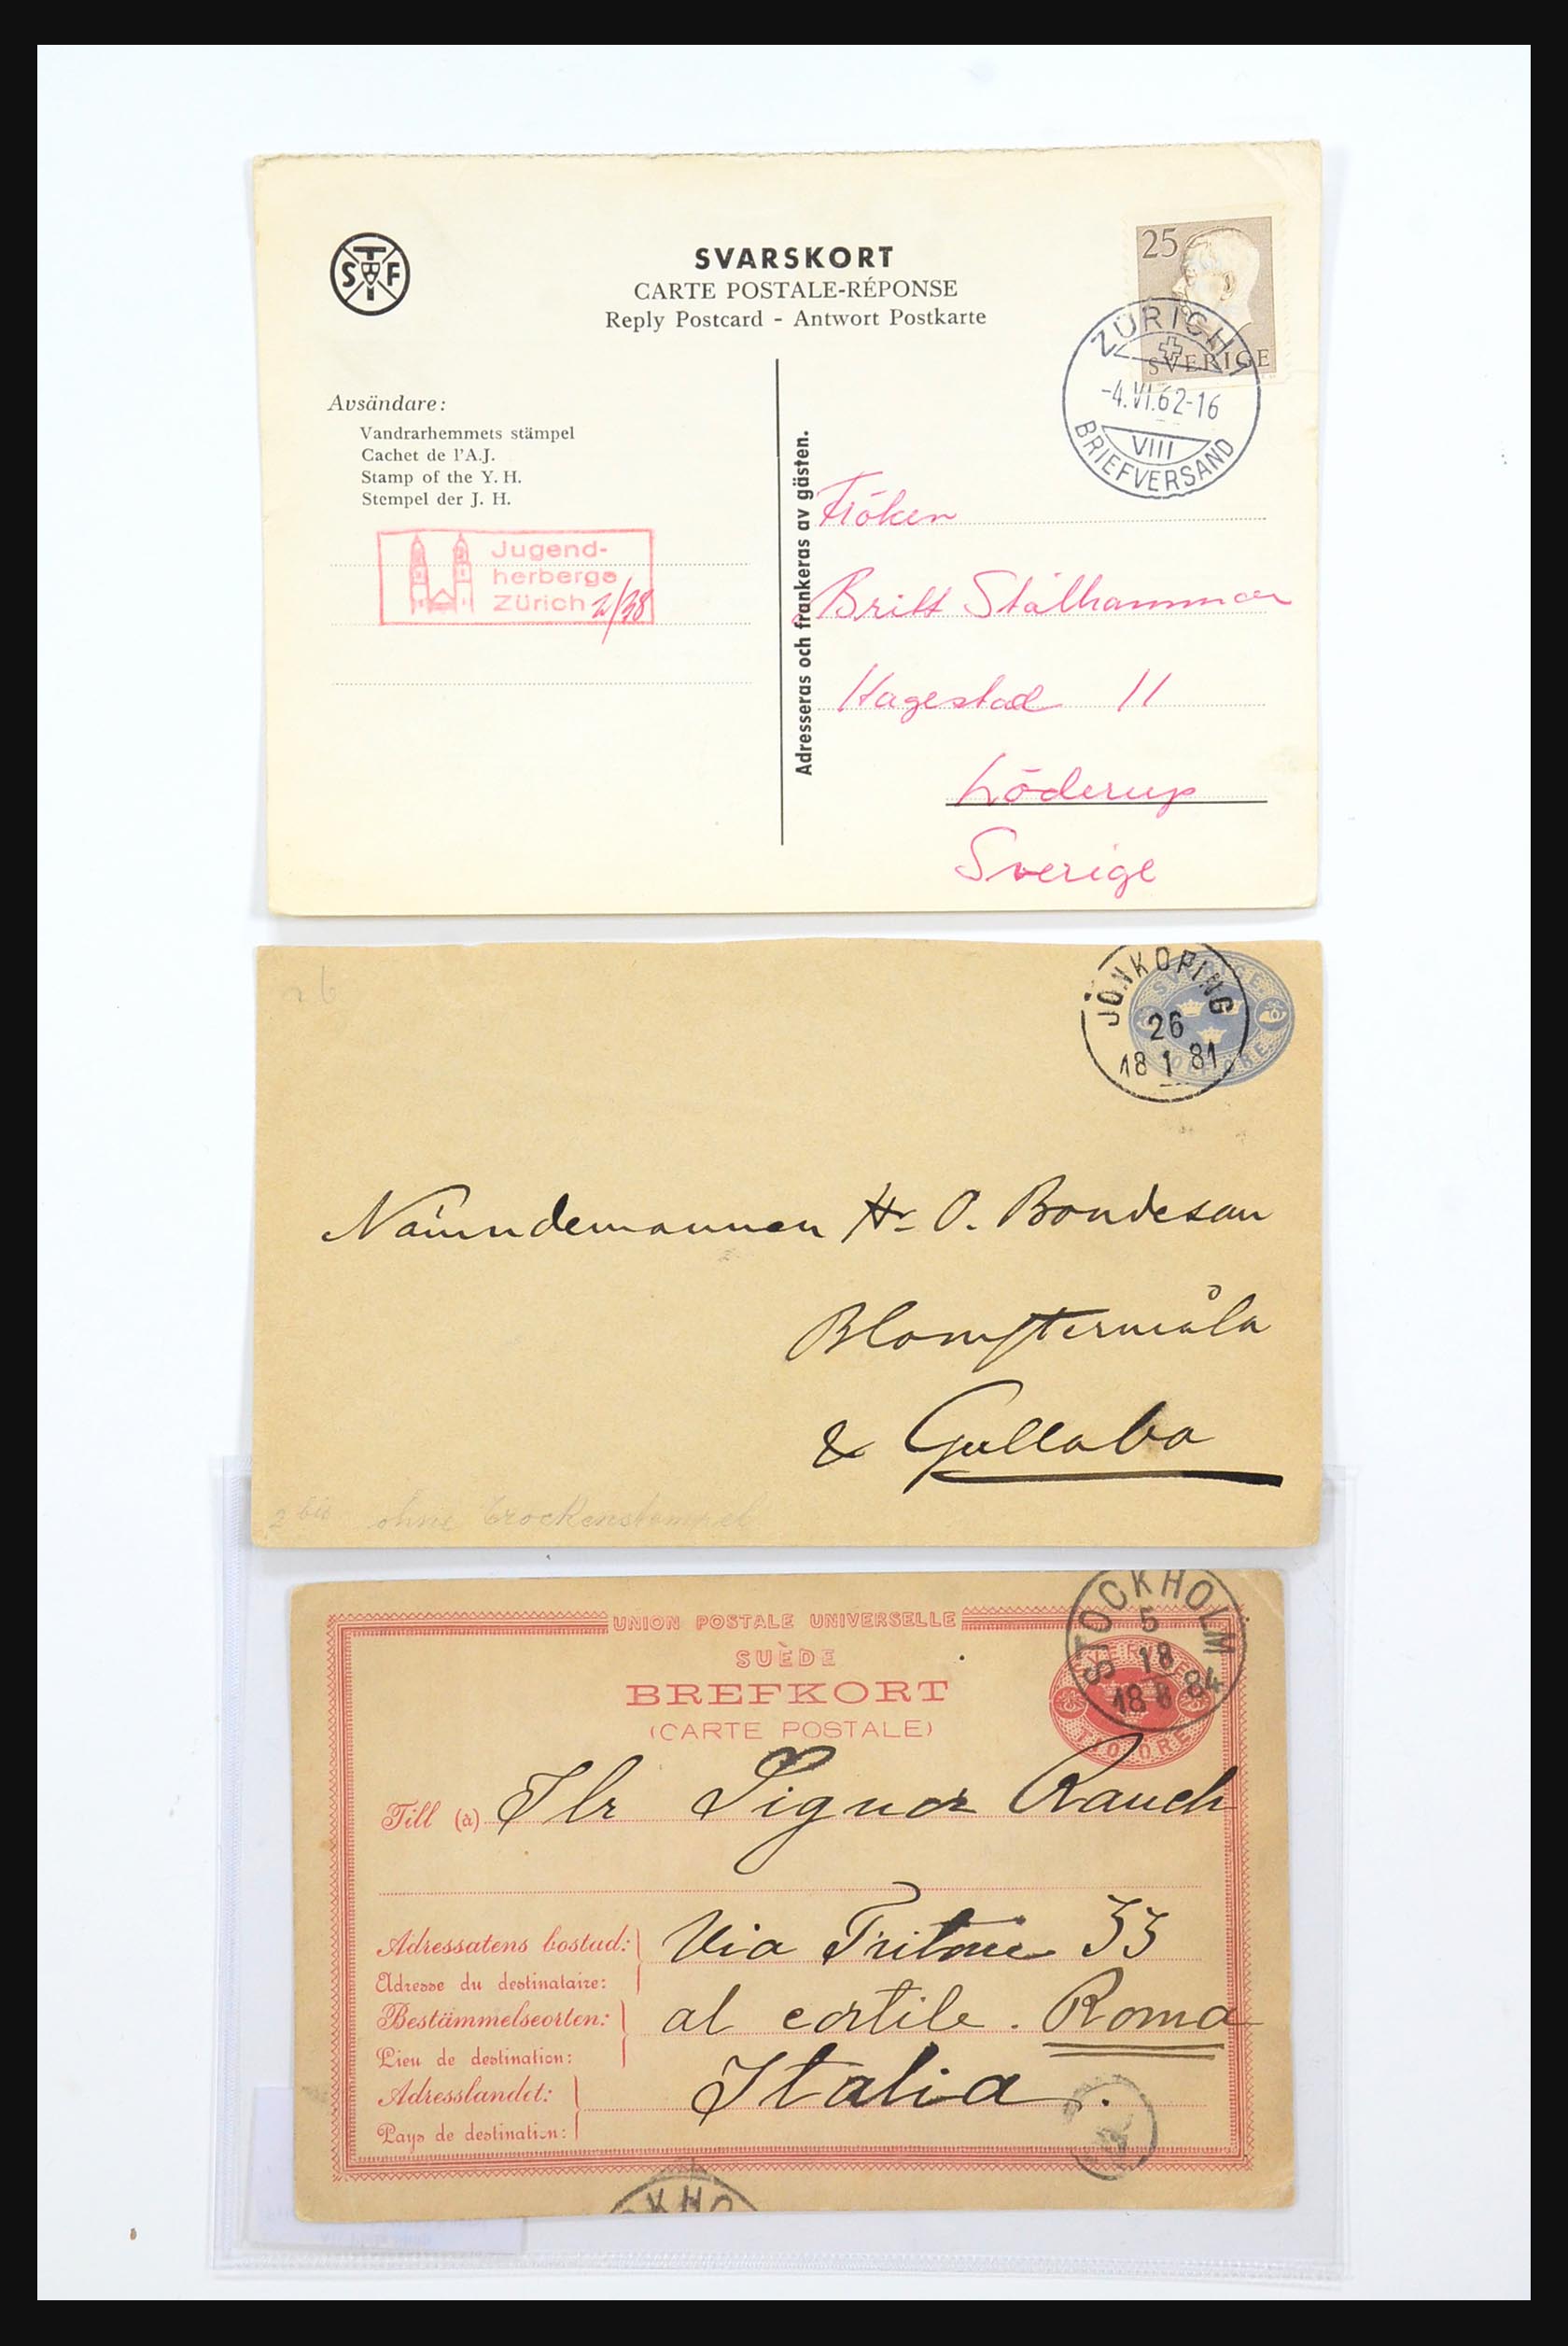 STF
SVARSKORT
CARTE POSTALE-RÉPONSE
Reply Postcard - Antwort Postkarte
25
SVERIGE
ZÜRICH 1
-4.VI.62-16
VIII
BRIEFVERSAND
Avsändare:
Vandrarhemmets stämpel
Cachet de l'A.J.
Stamp of the Y. H.
Stempel der J. H.
Jugend-
herberge
Zürich 2/38
Adresseras och frankeras av gästen.
Fröken
Britt Stålhammar
Hagestad 11
Löderup
Sverige
JÖNKÖPING
26
18 1 81
SVERIGE
Nämndemannen Hr O. Bondesan
Blomstermåla
& Gullabo
2 bis ohne Trockenstempel
UNION POSTALE UNIVERSELLE
SUÈDE
BREFKORT
(CARTE POSTALE)
STOCKHOLM
5
18
18 8 84
TIO ÖRE
Till (à) Ilr Signor Rauch
Adressatens bostad: Via Tritone 33
Adresse du destinataire:
Bestämmelseorten: al cortile. Roma
Lieu de destination:
Adresslandet: Italia.
Pays de destination:
CKHO